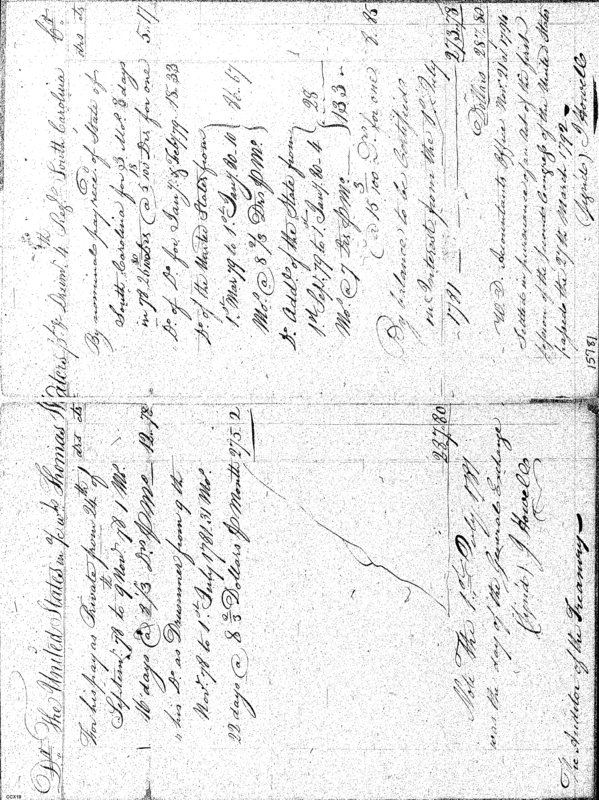 Dr. The United States in acct. with Thomas Waters pt. & Drumr. 4th Regt. South Carolina Cr.
drs cts
For his pay as Private from 24th of
Septem. 78 to 9th Novr. 78 1 Mo.
16 days @ 8 1/3 Drs. p Mo. 12.78
" his Do. as Drummer from 9th
Novr. 78 to 1st July 1781. 31 Mo.
22 days @ 8 2/3 Dollars p Month 275.2
287.80
Note The 1st July 1781
was the day of the General Exchange
(Signed) J Howell
The Auditor of the Treasury
drs cts
By nominal pay recd. of State of
South Carolina for 3 Mos. 8 days
in 78 26 @ 5 Drs for one 5.17
Do. of Do. for Jany. & Feby. 79 18.33
Do. of the United States from
1st Mar 79 to 1st Jany. 80. 10
Mo. @ 8 2/3 Drs p Mo. 86.67
Do. Addl. of the State from
1st Sept. 79 to 1. Jany. 80. 4
Mo. @ 7 Drs p Mo. 28
133
@ 15 Drs for one 8.85
By balance to be Certified
on Interest from the 1st July
1781 273.78
Dollars 287.80
W.D. Accountants Office Novr. 21st 1794
Settled in pursuance of an Act of the first
Session of the second Congress of the United States
passed the 27th March 1792
(Signed) J Howell
15781
CCX19